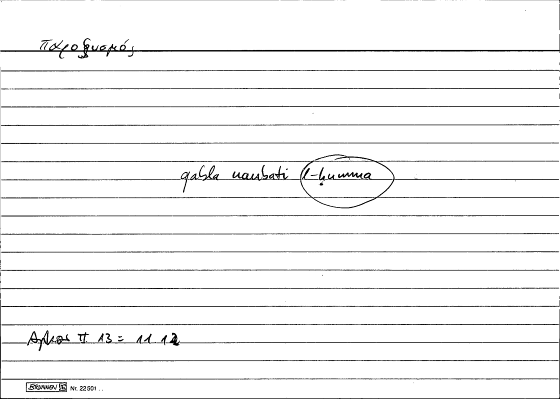 παροξυσμός
qabla naubati l-ḥumma
II 13 = 11.12
BRUNNEN Nr. 22501